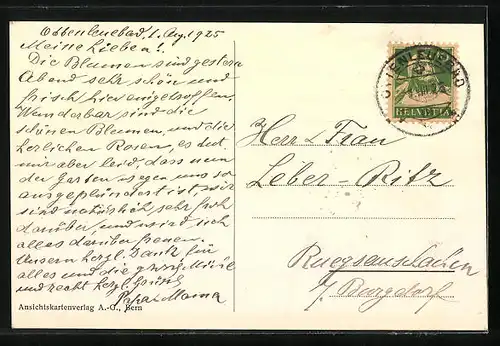 Ottenleuebad, 1. Aug. 1925
Meine Lieben!
Die Blumen sind gestern
Abend sehr schön und
frisch hier eingetroffen.
Wunderbar sind die
schönen Blumen, und die
herlichen Rosen, es tut
mir aber leid, dass nun
der Garten wegen uns so
ausgeplündert ist, wir
sind natürlich sehr froh
darüber, und wird sich
alles darüber freuen.
Unsern herzl. Dank für
alles und die
und recht herzl. Grüsse
Papa & Mama
Ansichtskartenverlag A.-G., Bern
OTTENLEUEBAD
HELVETIA
Herr & Frau
Leber-Ritz
Ruegsauschachen
b/ Burgdorf